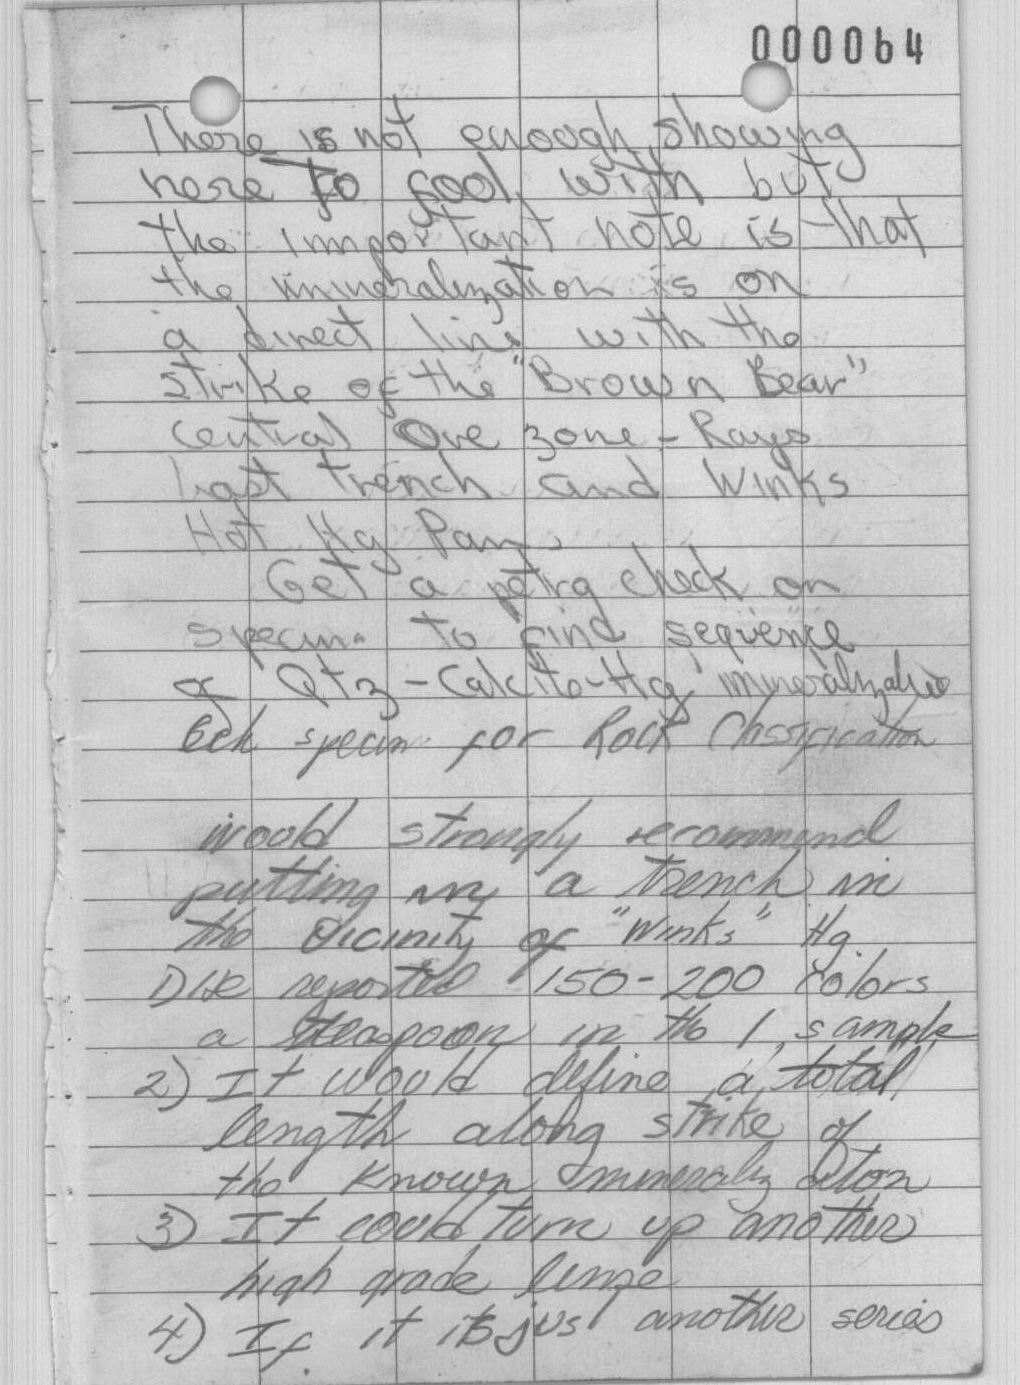 000064
There is not enough showing
here to fool with but
the important note is that
the mineralization is on
a direct line with the
strike of the "Brown Bear"
Central Ore zone - Rays
Last trench and Winks
Hot Hg Pan
Get a petrg check on
specim. to find sequence
of Qtz - Calcite - Hg mineralization
specim for Rock Classification
would strongly recommend
putting in a trench in
the vicinity of "Winks" Hg.
1) He reported 150-200 colors
a teaspoon in the 1 sample
2) It would define a total
length along strike of
the known mineralization
3) It could turn up another
high grade linze
4) If it is jus another series